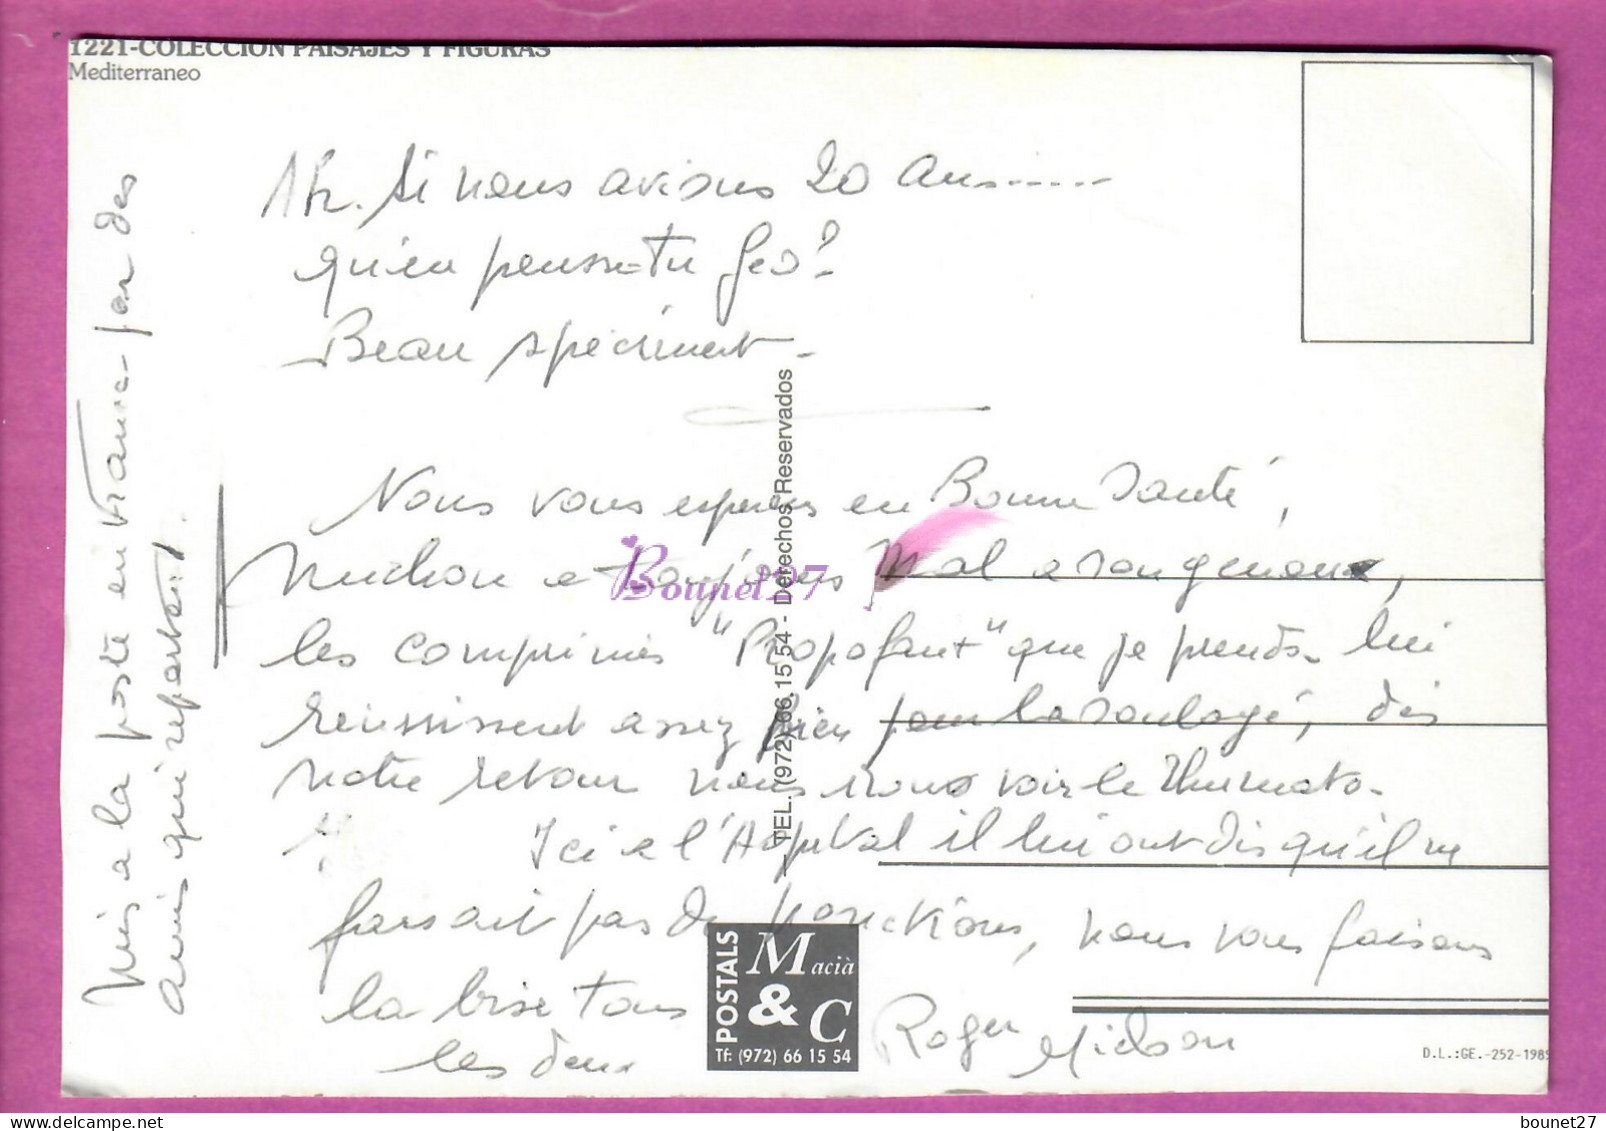 1221-COLECCION PAISAJES Y FIGURAS
Mediterraneo
Ah. Si nous avions 20 ans......
qu'en penses-tu Géo?
Beau spéciment.
Nous vous esperons en Bonne Santé,
a toujours mal a son genoux,
les comprimés "Propofant" que je prends. lui
reussissent assez bien pour la soulagé, dès
notre retour nous irons voir le Rhumato.
Ici a l'Hopital il lui ont dis qu'il ne
farsait pas de ponctions, nous vous faisons
la bise tous
les deux
Roger
Mis a la poste en France par des
amis qui repartent.
TEL. (972) 66 15 54 - Derechos Reservados
POSTALS
Macià
& C
Tf: (972) 66 15 54
D.L.:GE.-252-1985
Bounet27
bounet27